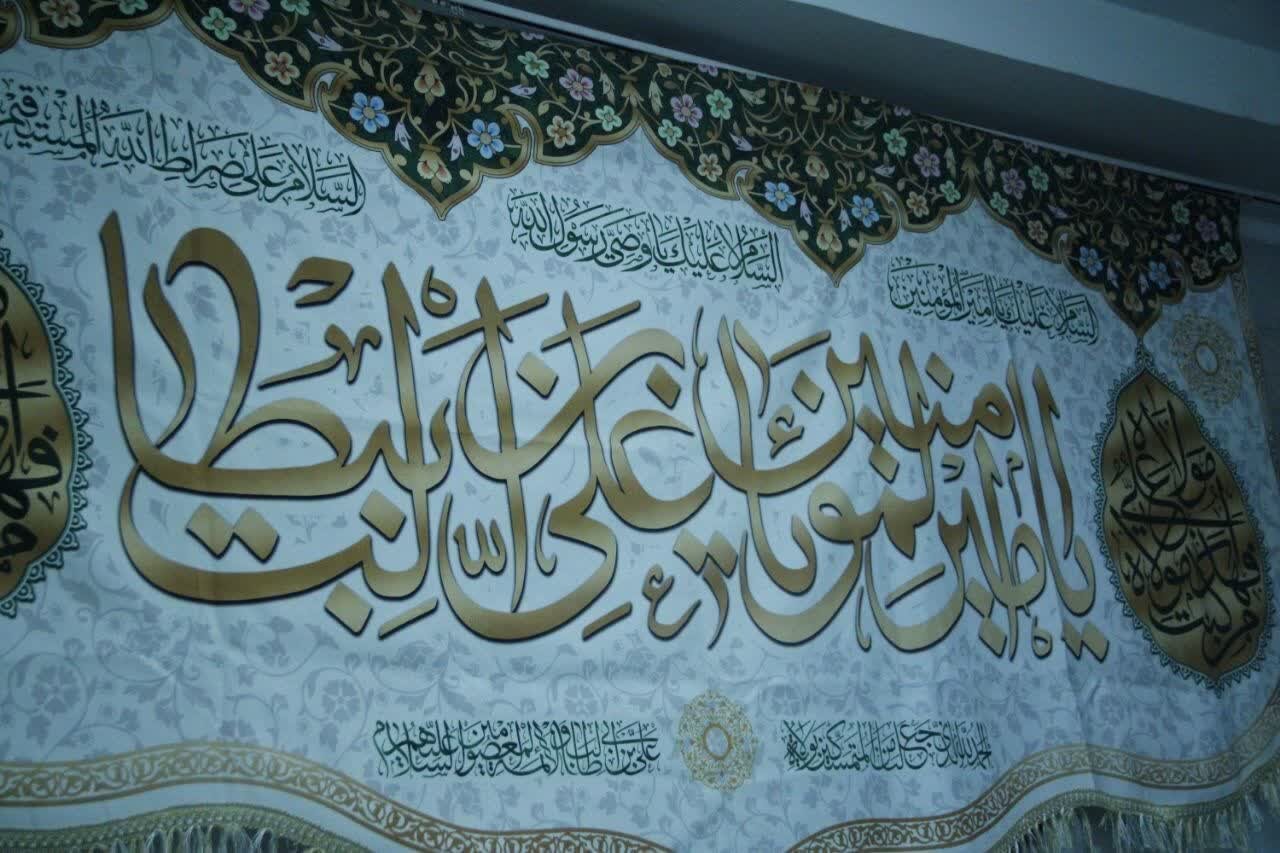 السلام عليك يا امير المؤمنين
السلام عليك يا وصي رسول الله
السلام على صراط الله المستقيم
يا امير المؤمنين يا علي بن ابي طالب
من كنت مولاه فهذا علي مولاه
الحمد لله الذي جعلنا من المتمسكين بولاية
علي بن ابي طالب والائمة المعصومين عليهم السلام